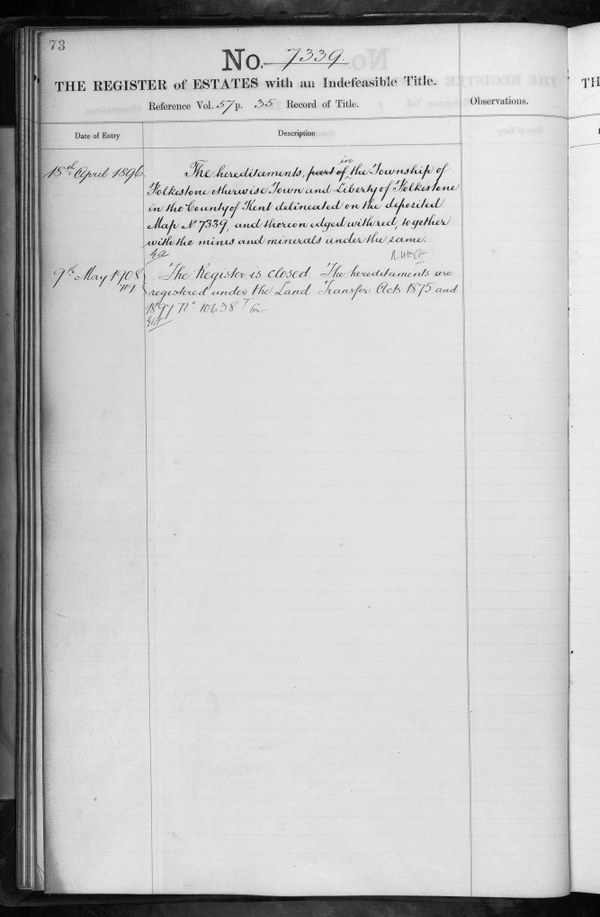 73
No. 7339.
THE REGISTER of ESTATES with an Indefeasible Title.
Reference Vol. 57 p. 35 Record of Title.
Observations.
Date of Entry
Description
18th April 1896
The hereditaments, part of in the Township of
Folkestone otherwise Town and Liberty of Folkestone
in the County of Kent delineated on the deposited
Map No 7339, and thereon edged with red, together
with the mines and minerals under the same.
9th May 1908
The Register is closed The hereditaments are
registered under the Land Transfer Acts 1875 and
1897 No 10638
TH